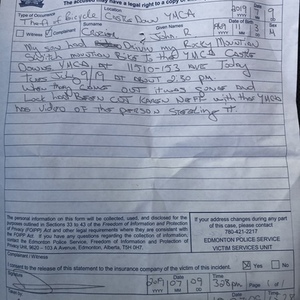 The accused may have a legal right to a copy
Type of Occurrence
Theft of Bicycle
Location
Castle Down YMCA
2019
9
Witness
Complainant
Surname
Given Names
John R
My son had Driven my Rocky Mountian
Bike to the YMCA Castle
Downs YMCA AT 11510-153 AVE Today
Tues July 9/19 AT about 2:30 PM.
When they came out it was gone and
Lock had Been cut. Karen Neff with the YMCA
has video of the person stealing it
The personal information on this form will be collected, used, and disclosed for the
purposes outlined in Sections 33 to 43 of the Freedom of Information and Protection
of Privacy (FOIPP) Act and other legal requirements where they are consistent with
the FOIP Act. If you have any questions regarding the collection of information,
contact the Edmonton Police Service, Freedom of Information and Protection of
Privacy Unit, 9620 – 103 A Avenue, Edmonton, Alberta, T5H 0H7.
If your address changes during any part
of this case, please contact
780-421-2217
EDMONTON POLICE SERVICE
VICTIM SERVICES UNIT
Complainant / Witness
I consent to the release of this statement to the insurance company of the victim of this incident.
Yes
No
Complainant / Witness
2019 07 09
Time
Page 1 of 1